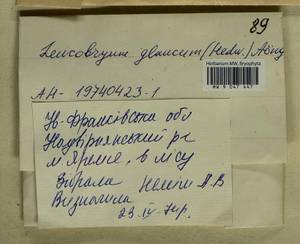 89
Leucobryum glaucum (Hedw.) Aongstr
Herbarium MW, Bryophyta
MW 9 047 447
АН- 19740423-1
Ів-Франківська обл
Надвірнянський р-
м. Яремче, в лісу
Зібрала
Визначила
23. IV-74р.